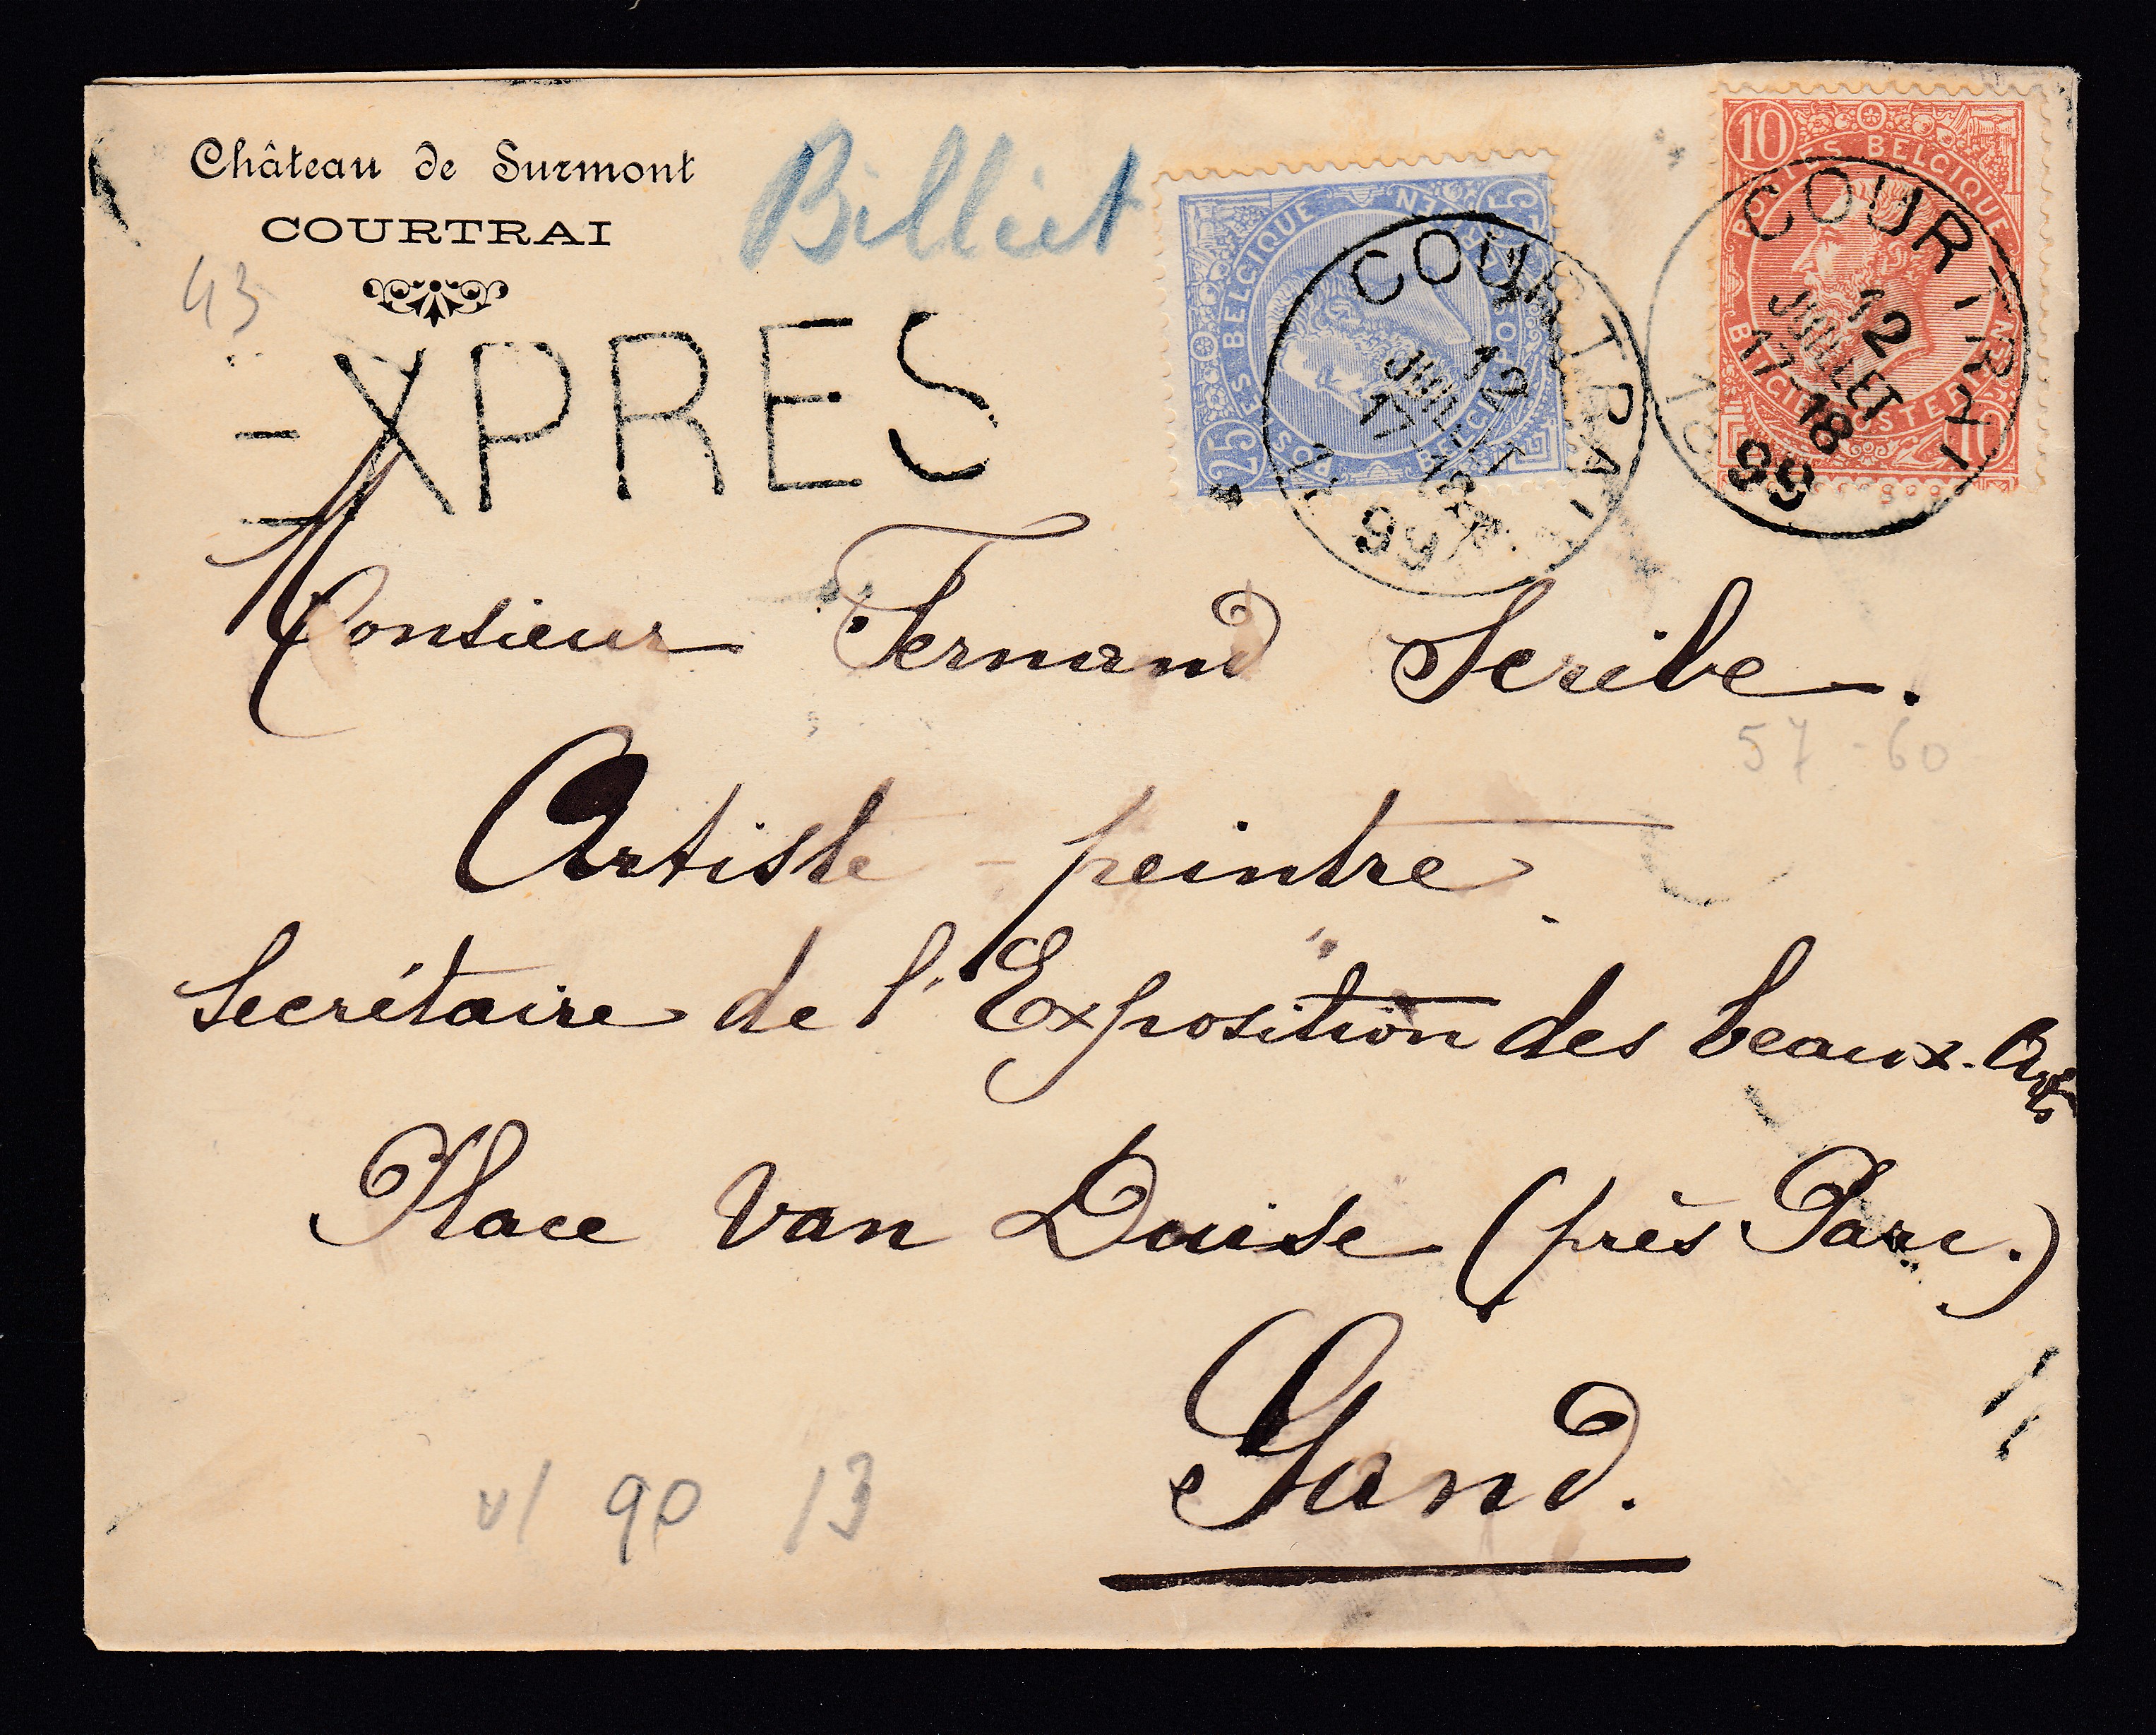 Château de Surmont
COURTRAI
Billiet
43
EXPRES
POSTES BELGIQUE
BELGIE POSTERIJEN
25
COURTRAI
12
JUILLET
17-18
99
10
POSTES BELGIQUE
BELGIE POSTERIJEN
10
COURTRAI
12
JUILLET
17-18
99
Monsieur Fernand Scribe.
57-60
Artiste-peintre
Secrétaire de l'Exposition des beaux-Arts
Place Van Duise (près Parc.)
Gand.
90 13